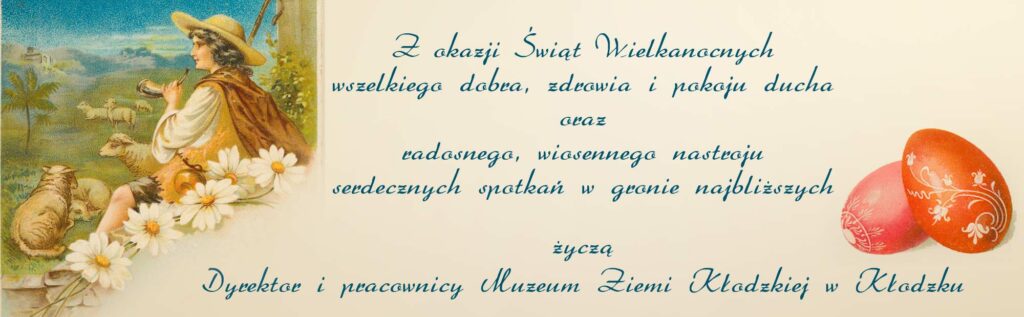 Z okazji Świąt Wielkanocnych
wszelkiego dobra, zdrowia i pokoju ducha
oraz
radosnego, wiosennego nastroju
serdecznych spotkań w gronie najbliższych
życzą
Dyrektor i pracownicy Muzeum Ziemi Kłodzkiej w Kłodzku